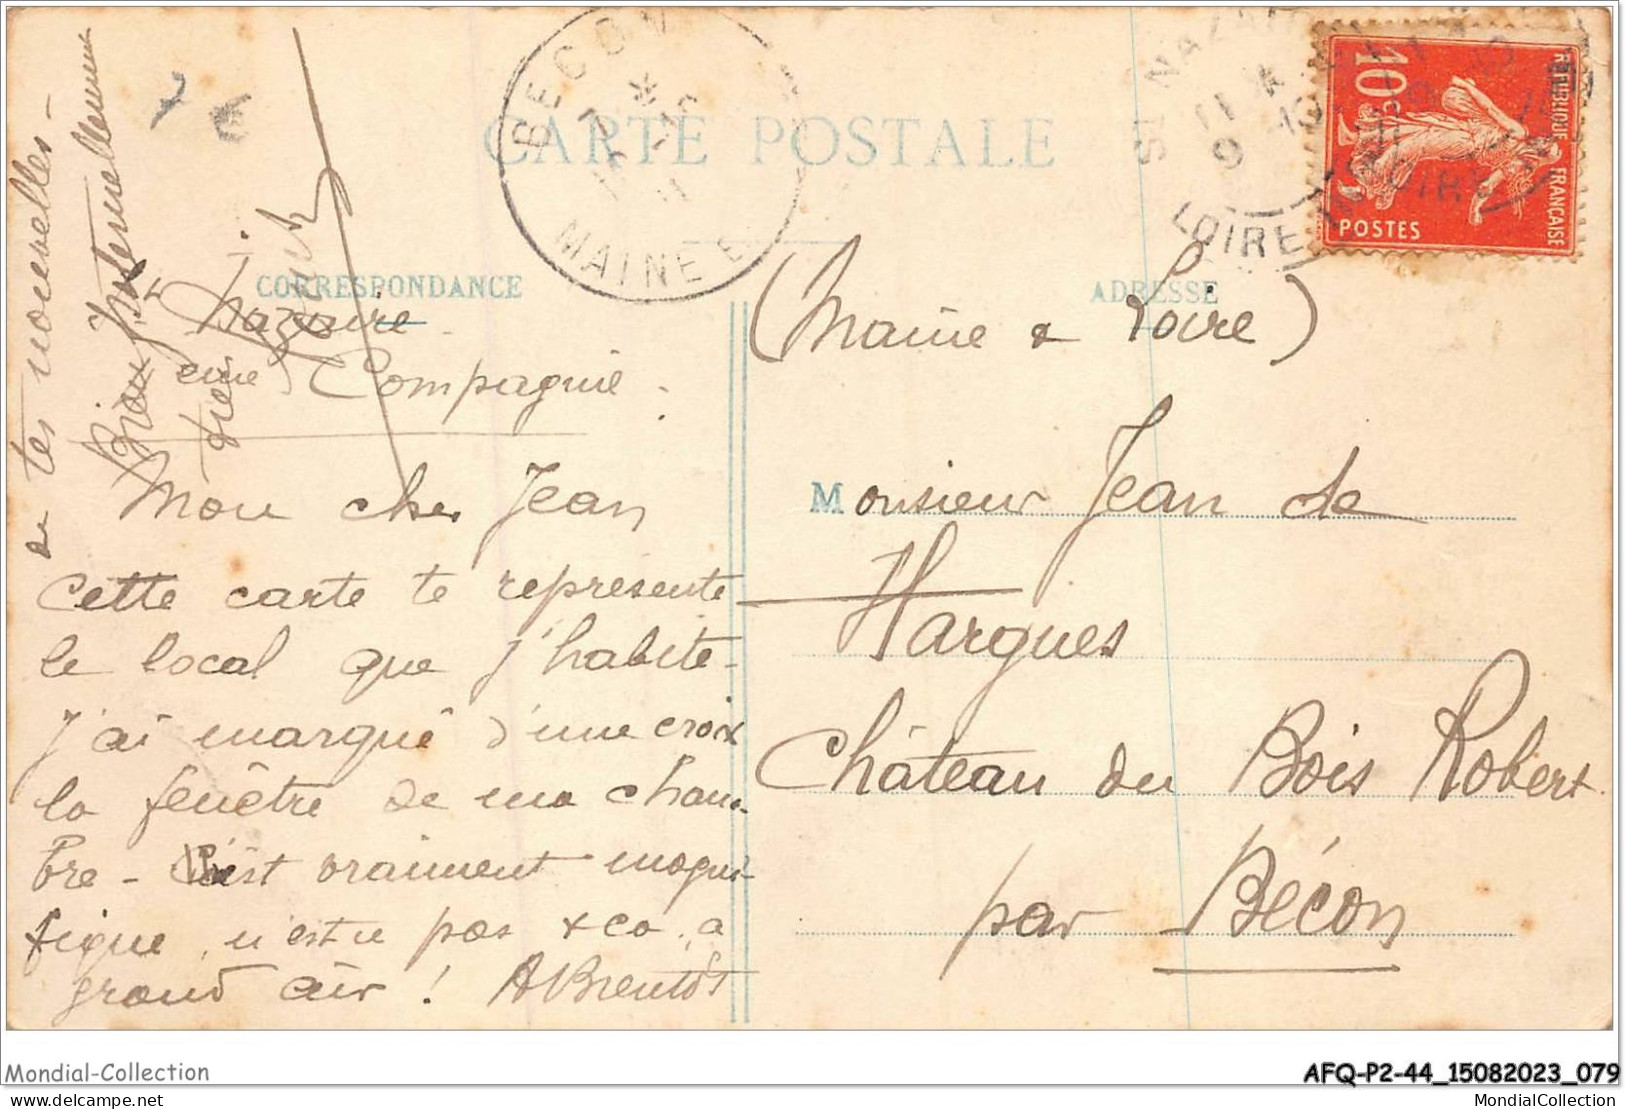 7 €
CARTE POSTALE
BECON
MAINE E
ST NAZAIRE
LOIRE
10c
REPUBLIQUE FRANÇAISE
POSTES
CORRESPONDANCE
ADRESSE
St Nazaire
eme Compagnie
Mon cher Jean
Cette carte te représente
le local que j'habite -
J'ai marqué d'une croix
la fenêtre de ma cham-
bre - C'est vraiment magni-
fique, n'est-ce pas
grand air ! A Bientôt
de tes nouvelles -
Bien fraternellement
(Maine & Loire)
Monsieur Jean de
Hargues
Château du Bois Robert
par Bécon
Mondial-Collection
AFQ-P2-44_15082023_079
delcampe.net
MondialCollection